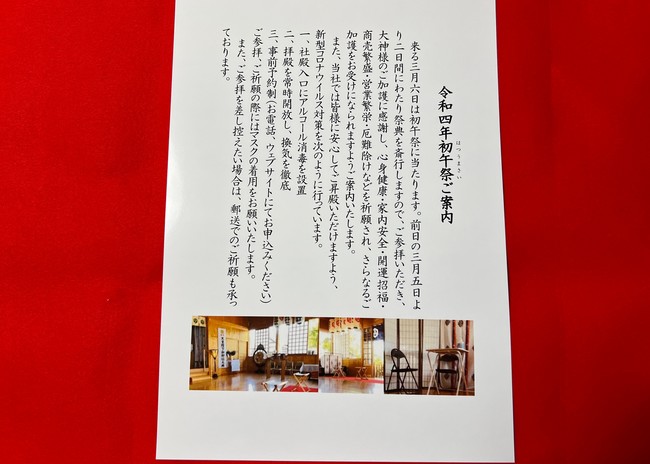 令和四年初午祭ご案内
はつうまさい
来る三月六日は初午祭に当たります。前日の三月五日よ
り二日間にわたり祭典を斎行しますので、ご参拝いただき、
大神様のご加護に感謝し、心身健康・家内安全・開運招福・
商売繁盛・営業繁栄・厄難除けなどを祈願され、さらなるご
加護をお受けになられますようご案内いたします。
また、当社では皆様に安心してご昇殿いただけますよう、
新型コロナウイルス対策を次のように行っています。
一、社殿入口にアルコール消毒を設置
二、拝殿を常時開放し、換気を徹底
三、事前予約制（お電話、ウェブサイトにてお申込みください）
ご参拝、ご祈願の際にはマスクの着用をお願いいたします。
また、ご参拝を差し控えたい場合は、郵送でのご祈願も承っ
ております。